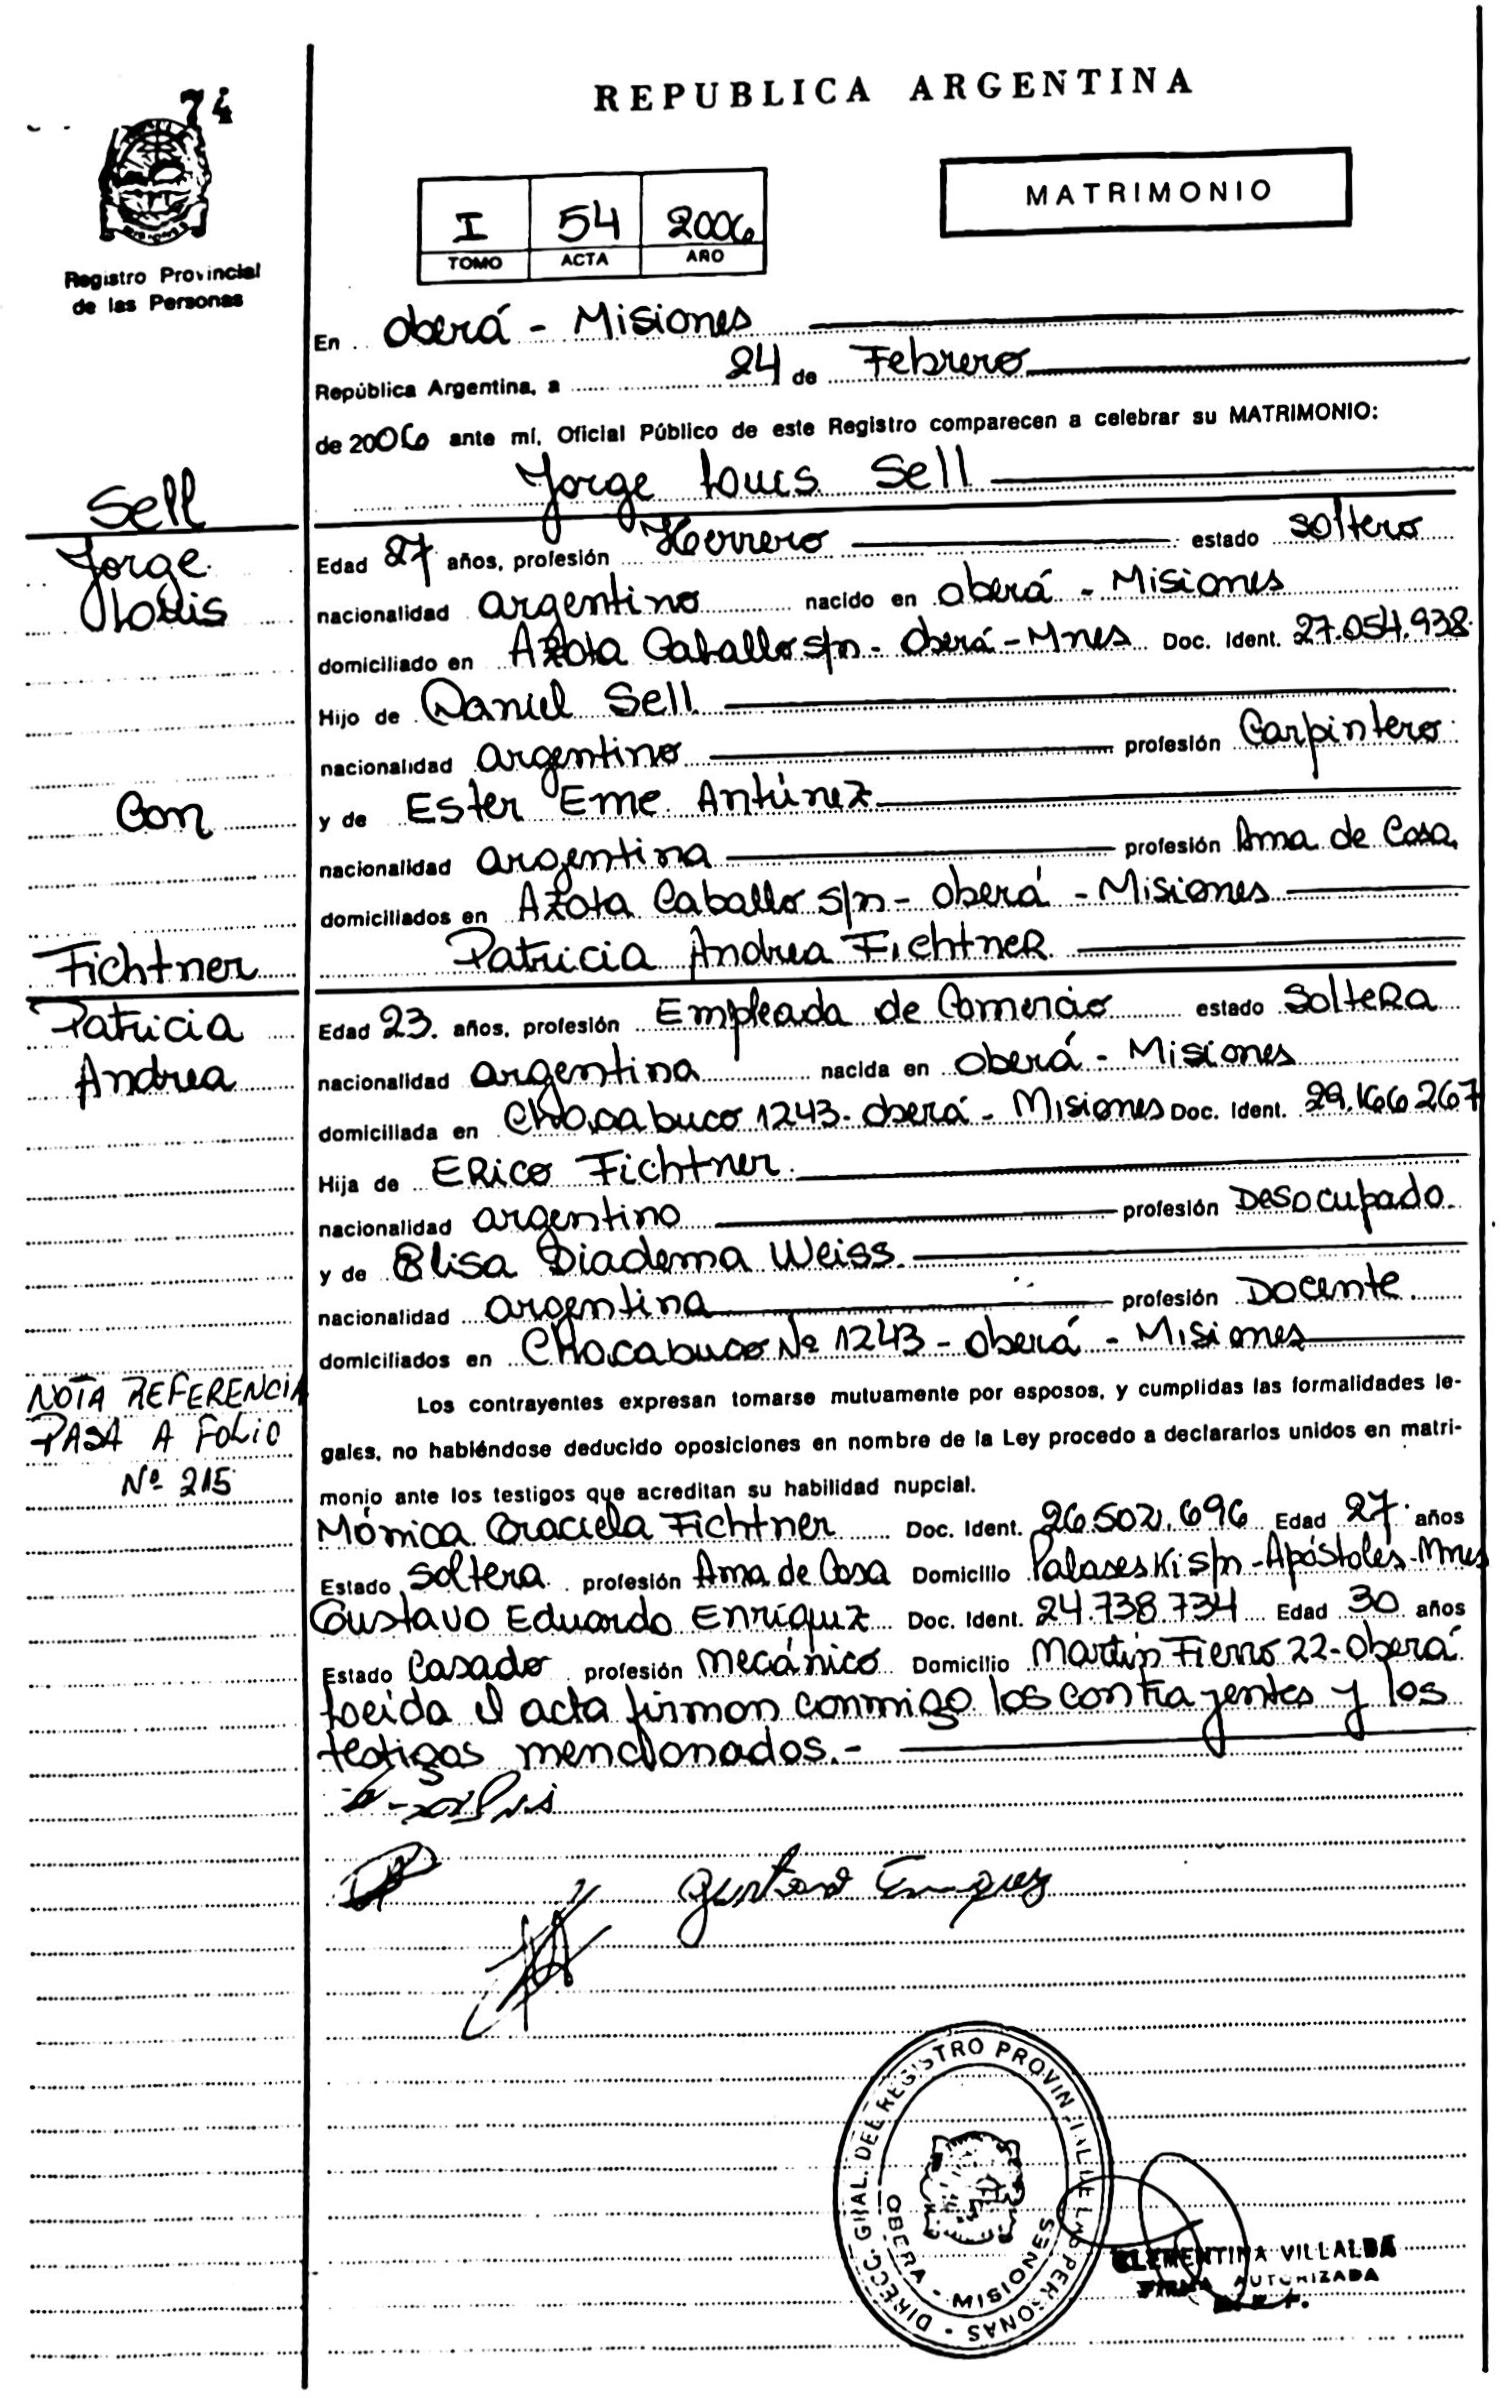 74
REPUBLICA ARGENTINA
MATRIMONIO
I 54 2006
TOMO ACTA AÑO
Registro Provincial
de las Personas
En Oberá - Misiones
República Argentina, a 24 de Febrero
de 2006 ante mí, Oficial Público de este Registro comparecen a celebrar su MATRIMONIO:
Jorge Louis Sell
Sell
Jorge
Louis
Edad 27 años, profesión Herrero estado soltero
nacionalidad argentino nacido en Oberá - Misiones
domiciliado en Azota Caballo s/n - Oberá - Mnes Doc. Ident. 27.054.938
Hijo de Daniel Sell
nacionalidad argentino profesión Carpintero
Con
y de Ester Eme Antúnez
nacionalidad argentina profesión Ama de Casa
domiciliados en Azota Caballo s/n - Oberá - Misiones
Patricia Andrea Fichtner
Fichtner
Patricia
Andrea
Edad 23 años, profesión Empleada de Comercio estado Soltera
nacionalidad argentina nacida en Oberá - Misiones
domiciliada en Chacabuco 1243 - Oberá - Misiones Doc. Ident. 29.166.267
Hija de Erico Fichtner
nacionalidad argentino profesión Desocupado
y de Elisa Diadema Weiss
nacionalidad argentina profesión Docente
domiciliados en Chacabuco Nº 1243 - Oberá - Misiones
NOTA REFERENCIA
PASA A FOLIO
Nº 215
Los contrayentes expresan tomarse mutuamente por esposos, y cumplidas las formalidades le-
gales, no habiéndose deducido oposiciones en nombre de la Ley procedo a declararlos unidos en matri-
monio ante los testigos que acreditan su habilidad nupcial.
Mónica Graciela Fichtner Doc. Ident. 26.502.696 Edad 27 años
Estado Soltera profesión Ama de Casa Domicilio Palaseski s/n - Apóstoles - Mnes
Gustavo Eduardo Enríquz Doc. Ident. 24.738.734 Edad 30 años
Estado Casado profesión mecánico Domicilio Martín Fierro 22 - Oberá
Loeida el acta firman conmigo los contrayentes y los
testigos mencionados.-
Gustavo Enriquez
DIRECC. GRAL. DEL REGISTRO PROVINCIAL DE LAS PERSONAS
OBERA - MISIONES
CLEMENTINA VILLALBA
FIRMA AUTORIZADA